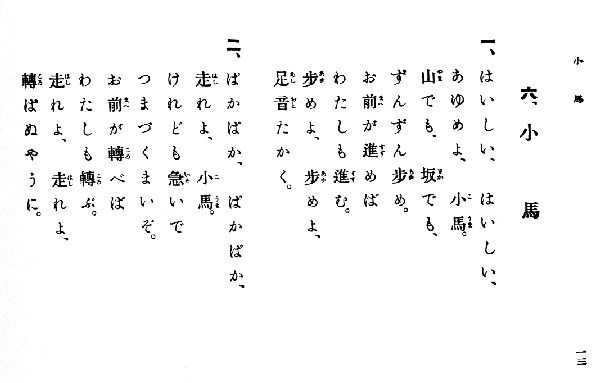 小馬
六、小馬
一、はいしい、はいしい、
あゆめよ、小馬。
山でも、坂でも、
ずんずん歩め。
お前が進めば
わたしも進む。
歩めよ、歩めよ、
足音たかく。
二、ぱかぱか、ぱかぱか、
走れよ、小馬。
けれども急いで
つまづくまいぞ。
お前が轉べば
わたしも轉ぶ。
走れよ、走れよ、
轉ばぬやうに。
一三